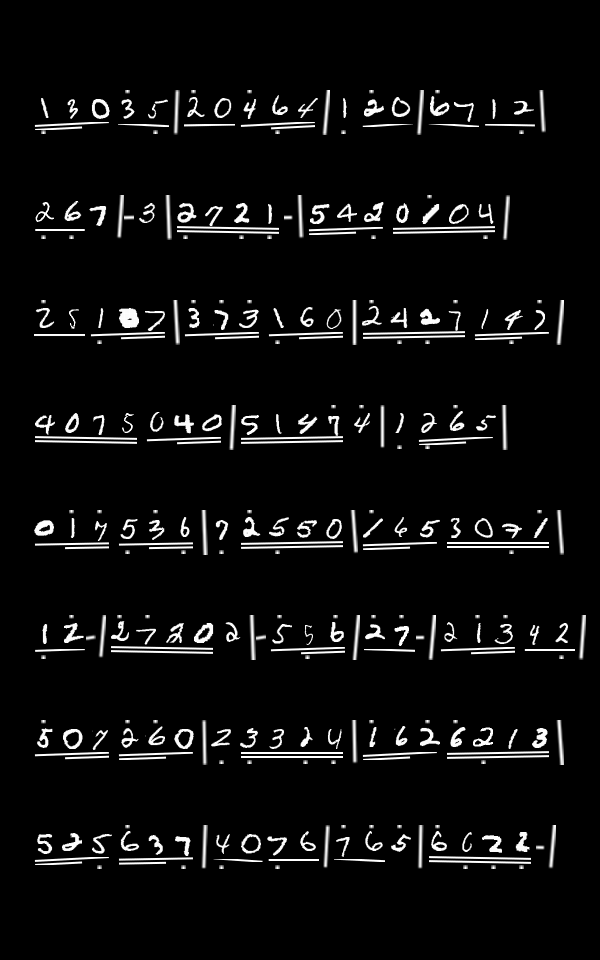 1 3 0 3 5 | 2 0 4 6 4 | 1 2 0 | 6 7 1 2 |
2 6 7 | - 3 | 2 7 2 1 - | 5 4 2 0 1 0 4 |
2 5 1 8 7 | 3 7 3 1 6 0 | 2 4 2 7 1 4 7 |
4 0 7 5 0 4 0 | 5 1 4 7 4 | 1 2 6 5 |
0 1 7 5 3 6 | 7 2 5 5 0 | 1 6 5 3 0 7 1 |
1 2 - | 2 7 2 0 2 | - 5 5 6 | 2 7 - | 2 1 3 4 2 |
5 0 7 2 6 0 | 2 3 3 2 4 | 1 6 2 6 2 1 3 |
5 2 5 6 3 7 | 4 0 7 6 | 7 6 5 | 6 0 2 2 - |